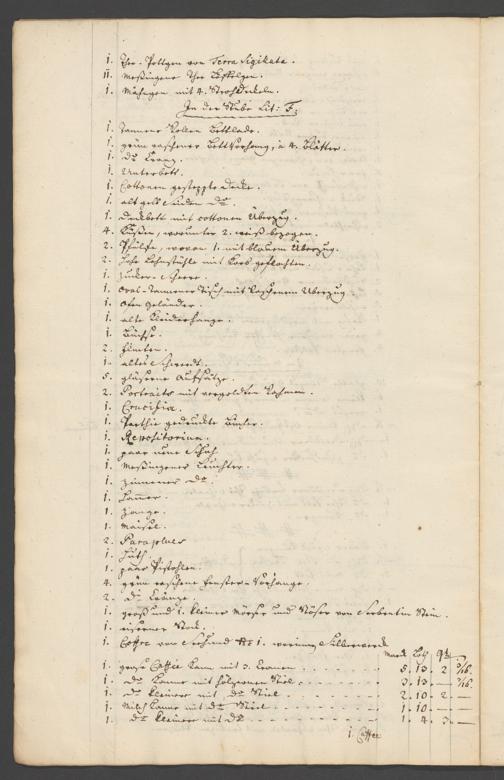 1. Thee-Pottgen von Terra Sigillata.
11. Meßingene Thee Leffelgen.
1. mit 4. Stroh Deckeln.
In der Stube Lit: F.
1. Tannene Bettlade.
1. grün raschener Bettvorhang, a 4. Blätter.
1. do Crantz.
1. Unterbett.
1. Cottonen gesteppte Decke.
1. alt gelb seiden do.
1. Deckbett mit cottonen Überzug.
4. Küßen, worunter 2. weiß bezogen.
2. Pfülfe, wovon 1. mit blauem Überzug.
2. hohe Lehnstühle mit Rohr geflochten.
1. Zucker-Scheere.
1. Oval-Tannener Tisch mit Überzug.
1. Ofen Geländer.
1. alte Kleiderhange.
1. Büchse.
2. Flinten.
1. altes Schwerdt.
5. gläserne Aufsätze.
2. Portraits mit vergoldten Rahmen.
1. Crucifix.
1. Parthie gedruckte Bücher.
1. Repositorium.
1. paar neue Schuh.
1. Meßingener Leuchter.
1. Zinnener do.
1. Hammer.
1. Zange.
1. Maisel.
2. Parapluies
1. Huth.
1. paar Pistohlen.
4. grün raschene Fenster-Vorhänge.
2. do Kräntze.
1. groß und 1. kleiner Mörser und Stößer von Serbentin Stein.
1. eiserner Stock.
1. Coffre von Seehund 1. worinn Silberwerck
Marck Loth qtl
1. große Coffee Kann mit 3. Cranen - - - 5. 13. 2 1/16.
1. do Kanne mit höltzernen Stiel - - - 3. 13. - 1/16.
1. do kleinere mit do Stiel - - - 2. 10. 2 -
1. Milch Kanne mit do Stiel - - - 1. 10. - -
1. do kleinere mit do - - - 1. 4. 3. -
1. Coffee